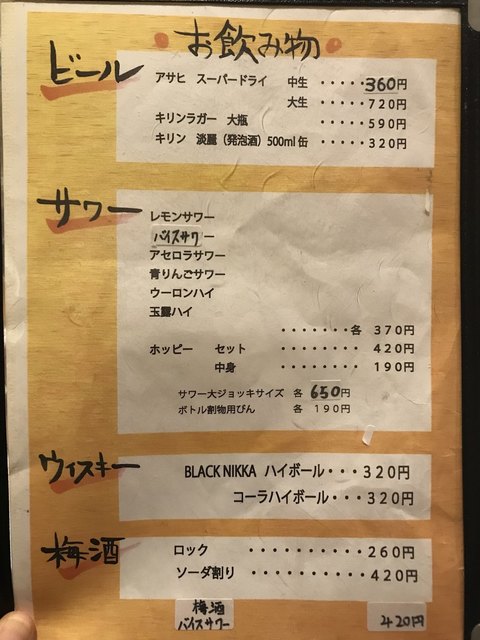 お飲み物
ビール
アサヒ スーパードライ 中生 ・・・・・360円
大生 ・・・・・720円
キリンラガー 大瓶 ・・・・・590円
キリン 淡麗（発泡酒）500ml缶 ・・・・・320円
サワー
レモンサワー
バイスサワー
アセロラサワー
青りんごサワー
ウーロンハイ
玉露ハイ
・・・・・・・各 370円
ホッピー セット ・・・・・・・・420円
中身 ・・・・・・・・190円
サワー大ジョッキサイズ 各 650円
ボトル割物用びん 各 190円
ウィスキー
BLACK NIKKA ハイボール・・・320円
コーラハイボール・・・320円
梅酒
ロック ・・・・・・・・・・260円
ソーダ割り ・・・・・・・・・・420円
梅酒
バイスサワー 420円